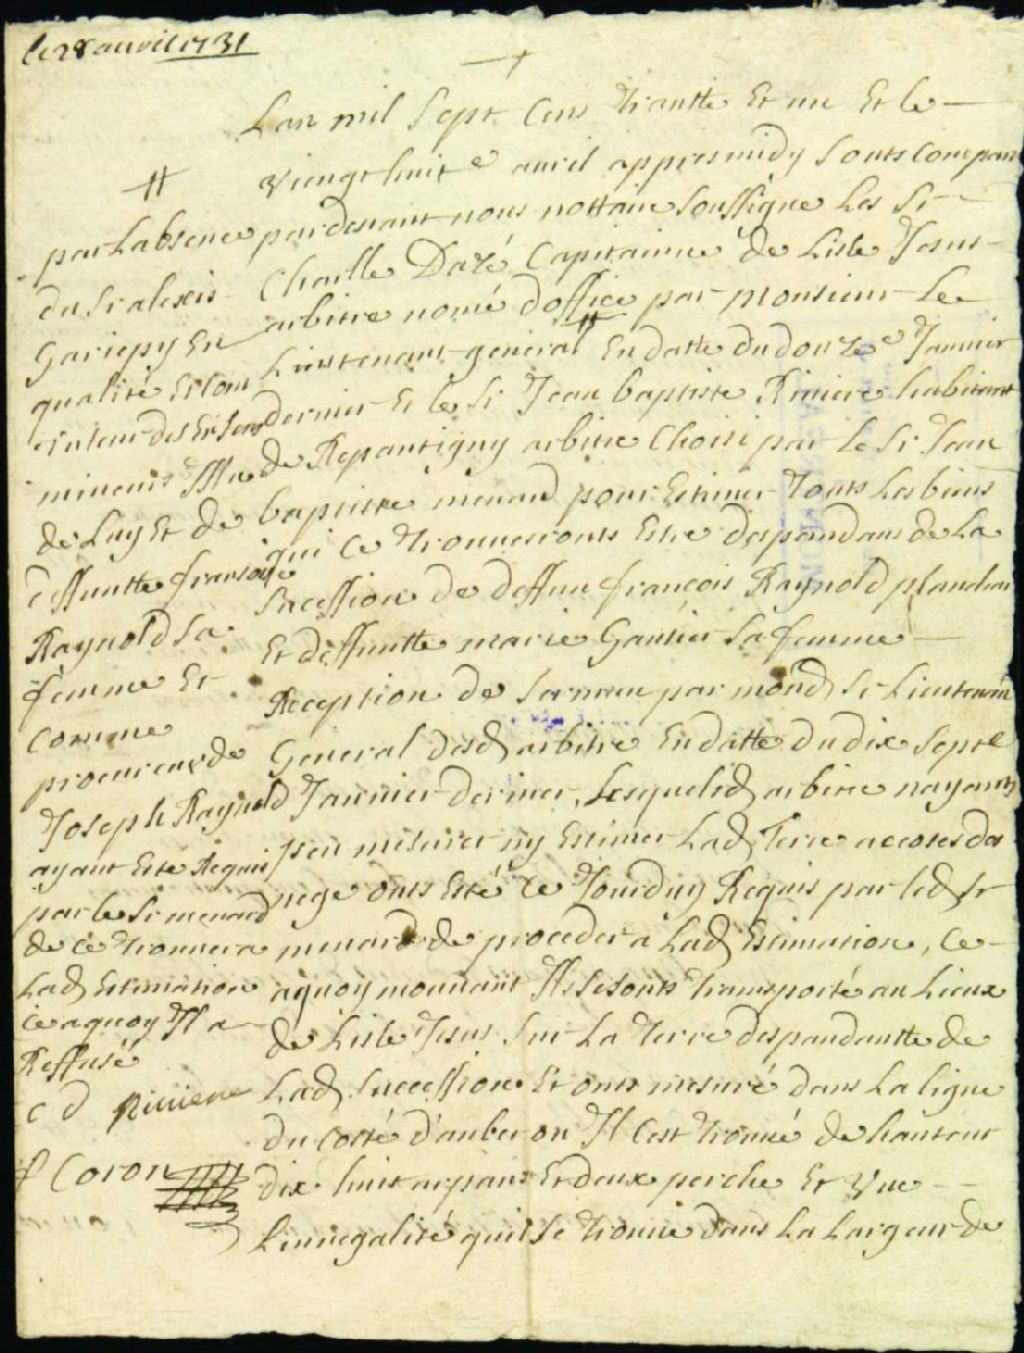 le 28 auvril 1731
Lan mil Sept Cens trantte Et un Et le
viengt huit e auvril appres midy Sonts compara
pardevant nous nottaire Soussigne Les Sr
Charlle Dazé Capitainne de Lisle Jesus
arbitre nomé doffice par monsieur Le
Lieutenant general En datte du douze e Janvier
dernier Et le Sr Jean baptiste Riviere habitant
de Repantigny arbitre Choisi par Le Sr Jean
baptiste menard pour Estimer touts Les biens
qui Ce trouveronts Estre despandans de La
Sucession de deffun françois Raynold planchar
Et deffuntte marie Gautier Sa femme
Reception de Serment par mond Sr Lieutenan
General desd arbitre En datte du dix Sept e
Janvier dernier, Lesquelsd arbitre nayant
peu mesurer ny Estimer Lad Terre a coses des
nege onts Esté Ce Jourduy Requis par led Sr
menard de proceder a Lad Estimation, Ce
aquoy mouvant Ils Sesonts transporté au Lieux
de Lisle Jesus Sur La terre despandantte de
Lad Succession Et onts mesuré dans La ligne
du costé d'auberon Il Cest trouvé de hauteur
dix huit arpans Et deux perche Et vue
Linnegalité quil Se trouve dans La Largeur de
par Labsence
du Sr alexis
Gariepy En
qualité Et com
tuteur des Enfens
mineurs Issue
de Luy Et de
deffuntte fransoise
Raynold Sa
femme Et
comme
procureur de
Joseph Raynold
ayant Esté Requis
par le Sr menard
de Ce trouver a
Lad Estimation
Ce aquoy Il a
Reffusé
c d Riviere
f Coron